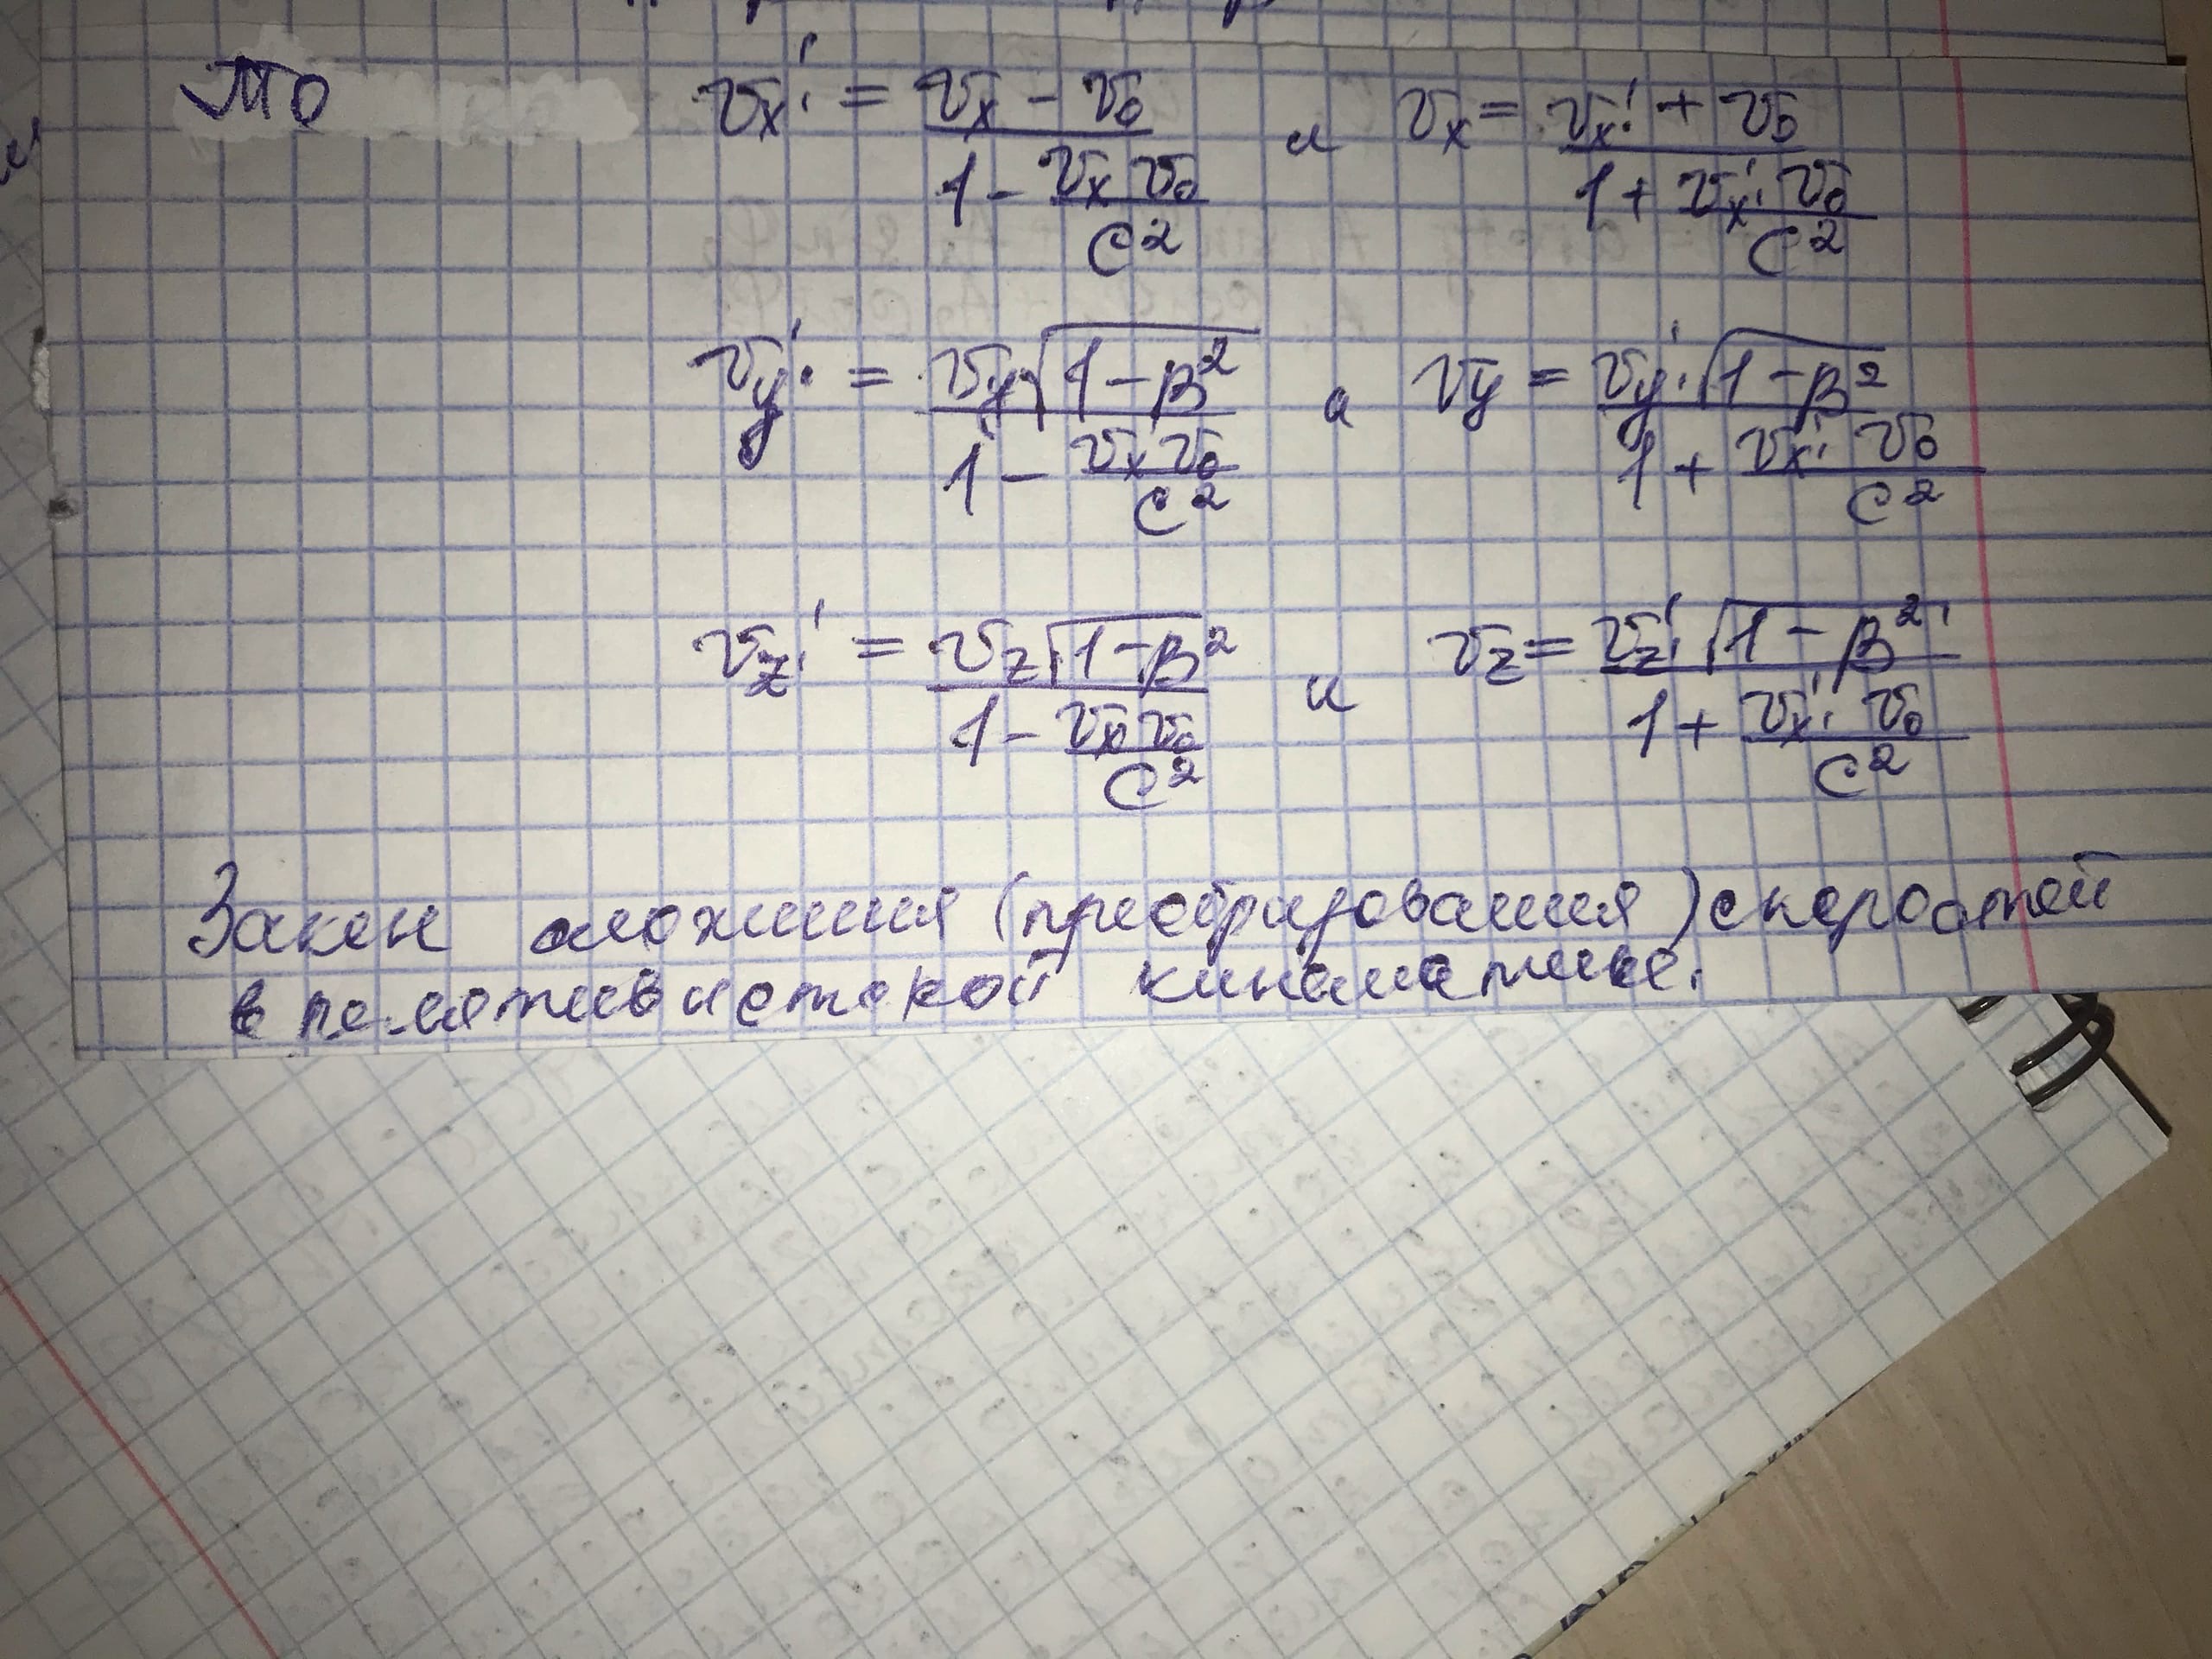 То v'ₓ' = (vₓ - v₀) / (1 - vₓ v₀ / c²) и vₓ = (v'ₓ' + v₀) / (1 + v'ₓ' v₀ / c²)
v'y' = vy √(1 - β²) / (1 - vₓ v₀ / c²) и vy = v'y' √(1 - β²) / (1 + v'ₓ' v₀ / c²)
v'z' = vz √(1 - β²) / (1 - vₓ v₀ / c²) и vz = v'z' √(1 - β²) / (1 + v'ₓ' v₀ / c²)
Закон сложения (преобразования) скоростей
в релятивистской кинематике.